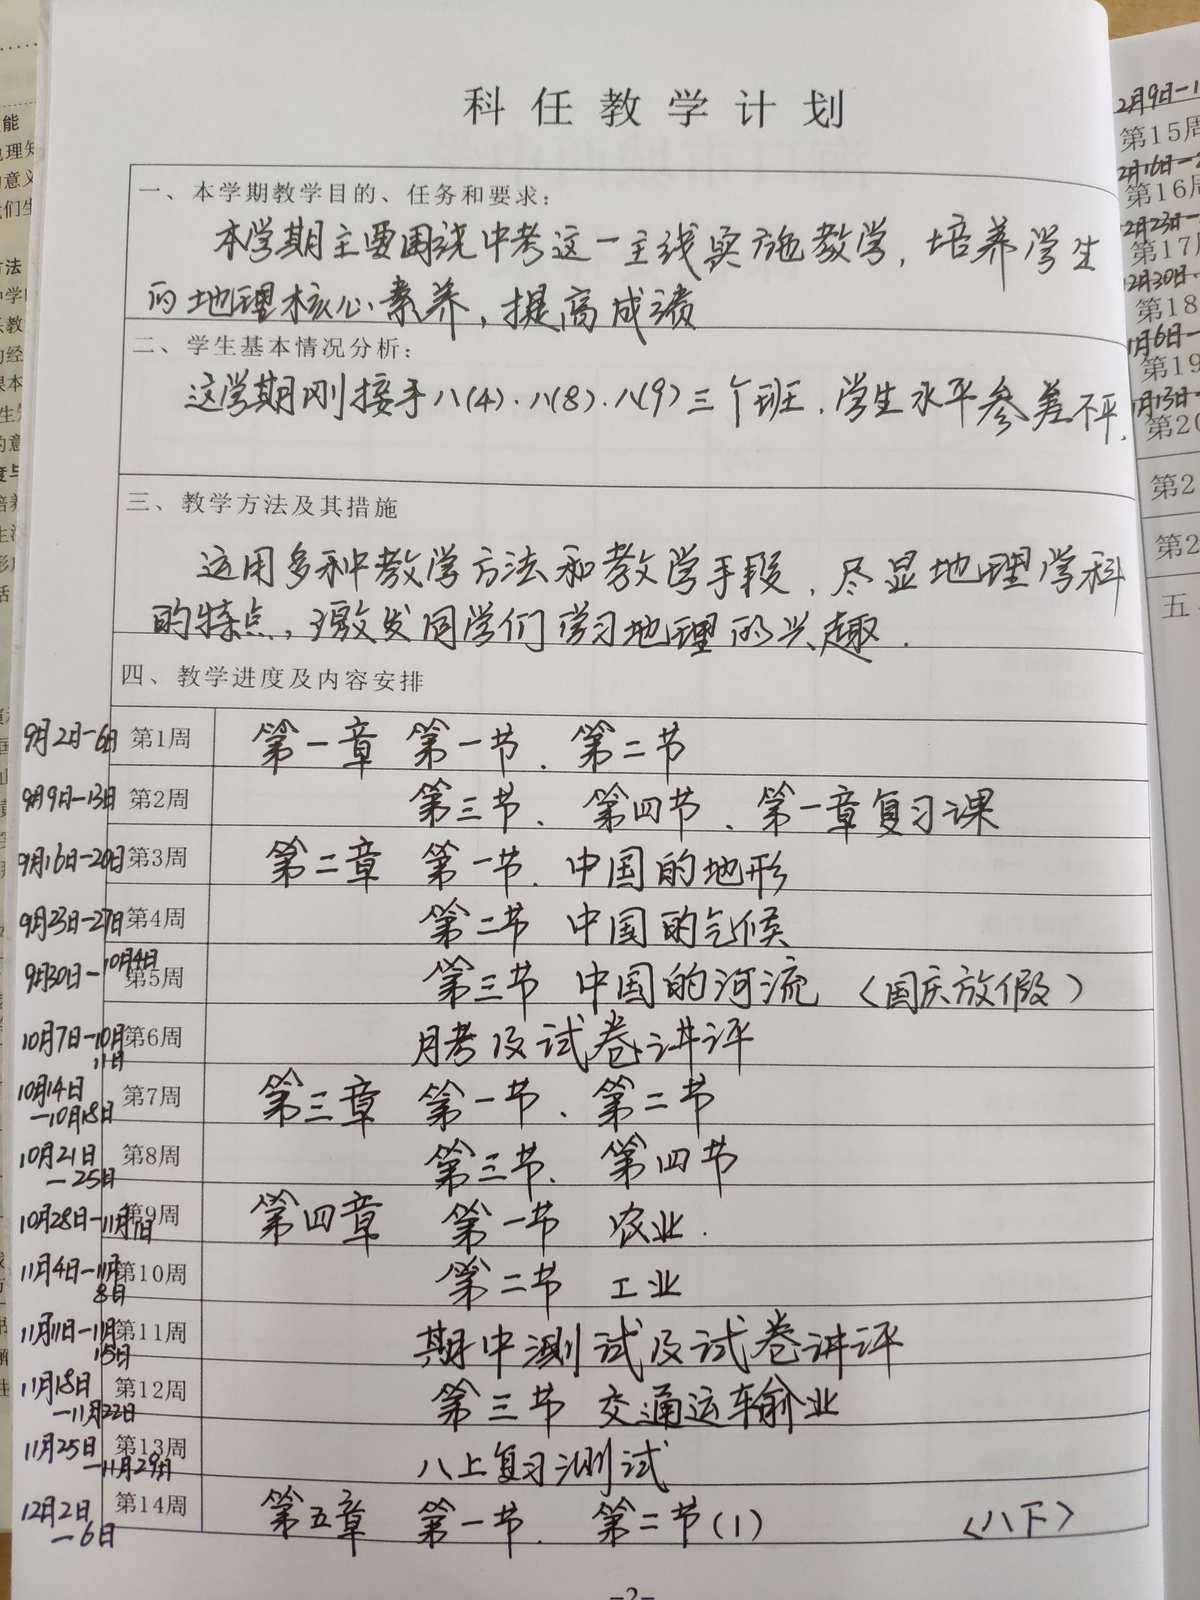 科任教学计划
一、本学期教学目的、任务和要求：
本学期主要围绕中考这一主线实施教学，培养学生
的地理核心素养，提高成绩
二、学生基本情况分析：
这学期刚接手八(4).八(8).八(9)三个班.学生水平参差不平.
三、教学方法及其措施
运用多种教学方法和教学手段，尽显地理学科
的特点，激发同学们学习地理的兴趣.
四、教学进度及内容安排
9月2日-6日 第1周 第一章 第一节、第二节
9月9日-13日 第2周 第三节、第四节、第一章复习课
9月16日-20日 第3周 第二章 第一节.中国的地形
9月23日-27日 第4周 第二节 中国的气候
9月30日-10月4日 第5周 第三节 中国的河流（国庆放假）
10月7日-10月11日 第6周 月考及试卷讲评
10月14日-10月18日 第7周 第三章 第一节、第二节
10月21日-25日 第8周 第三节、第四节
10月28日-11月1日 第9周 第四章 第一节 农业.
11月4日-11月8日 第10周 第二节 工业
11月11日-11月15日 第11周 期中测试及试卷讲评
11月18日-11月22日 第12周 第三节 交通运输业
11月25日-11月29日 第13周 八上复习测试
12月2日-6日 第14周 第五章 第一节. 第二节(1) （八下）
-2-
2月9日-1
第15周
2月16日-2
第16周
2月23日-
第17周
2月30日-
第18
1月6日-
第19
1月13日-
第20
第2
第2
五